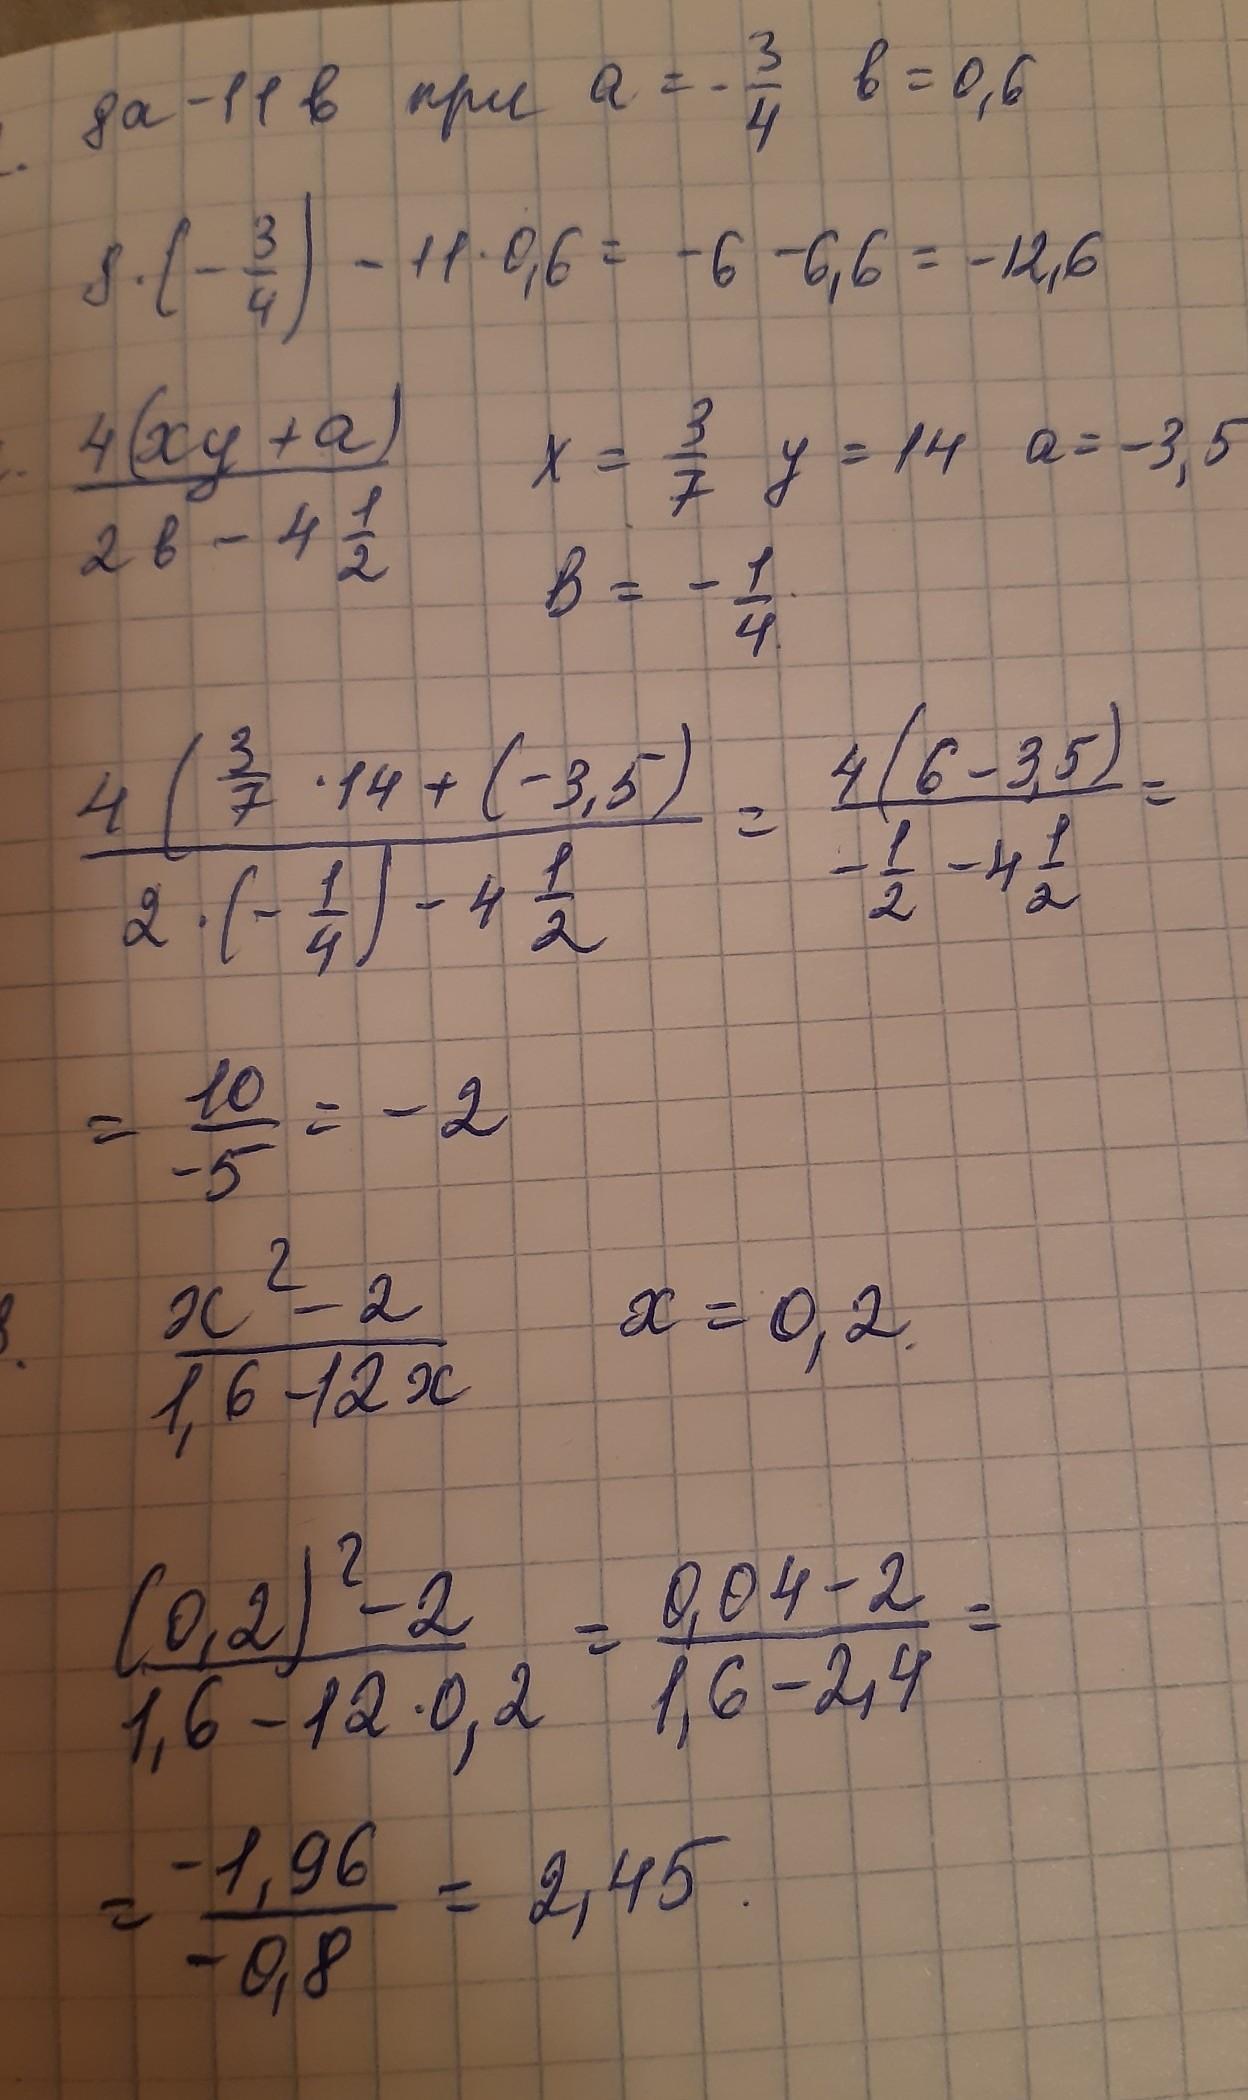 8a - 11в при a = -3/4 в = 0,6
8·(-3/4) - 11·0,6 = -6 - 6,6 = -12,6
4(xy + a)/(2в - 4 1/2) x = 3/7 y = 14 a = -3,5
В = -1/4.
4(3/7 · 14 + (-3,5)/2·(-1/4) - 4 1/2 = 4(6 - 3,5)/-1/2 - 4 1/2 =
= 10/-5 = -2
3. x² - 2/1,6 - 12x x = 0,2.
(0,2)² - 2/1,6 - 12·0,2 = 0,04 - 2/1,6 - 2,4 =
= -1,96/-0,8 = 2,45.